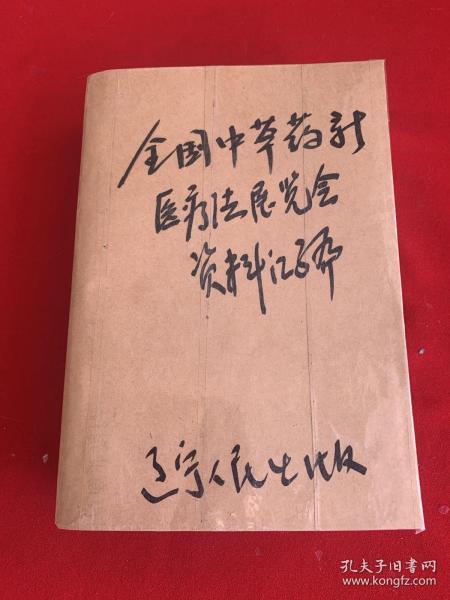 全国中草药新
医疗法展览会
资料汇编
辽宁人民出版
孔夫子旧书网
www.kongfz.com